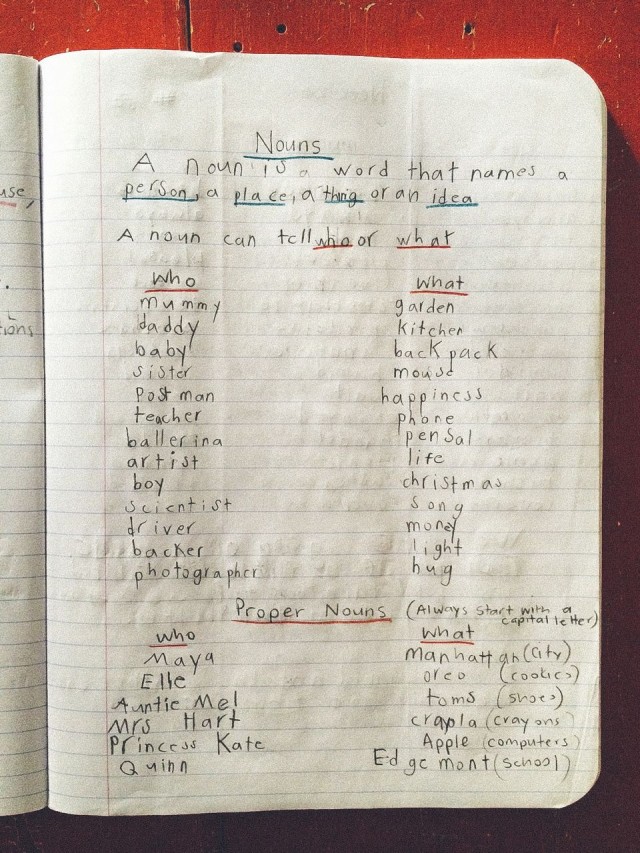 Nouns
A noun is a word that names a
person, a place, a thing or an idea
A noun can tell who or what
who what
mummy garden
daddy kitchen
baby backpack
sister mouse
postman happiness
teacher phone
ballerina pensal
artist life
boy christmas
scientist song
driver money
backer light
photographer hug
Proper Nouns (Always start with a
capital letter)
who what
Maya manhattan (city)
Elle oreo (cookies)
Auntie Mel toms (shoes)
Mrs Hart crayola (crayons)
Princess Kate Apple (computers)
Quinn Edgemont (school)
use,
tions